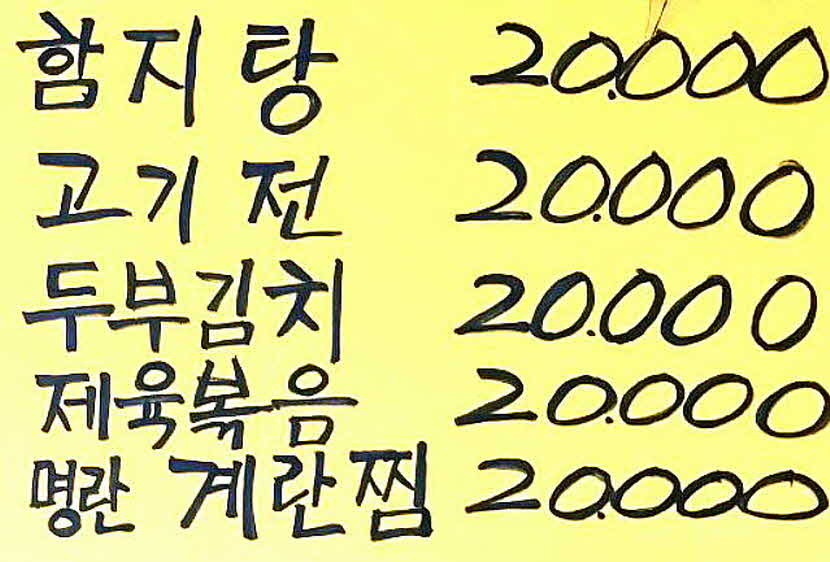 함지탕 20.000
고기전 20.000
두부김치 20.000
제육볶음 20.000
명란 계란찜 20.000